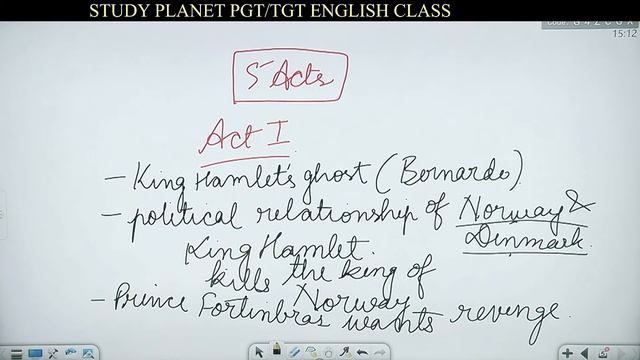 STUDY PLANET PGT/TGT ENGLISH CLASS
15:12
5 Acts
Act I
- King Hamlet's ghost (Bernardo)
- political relationship of Norway &
Denmark.
King Hamlet.
kills the king of
Norway
- Prince Fortinbras wants revenge.